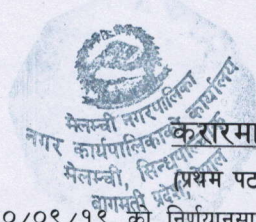 मेलम्ची नगरपालिका
नगर कार्यपालिकाको कार्यालय
मेलम्ची, सिन्धुपाल
बागमती प्रदेश
करारमा
(प्रथम पट
०/०९/१९ को निर्णयानुसा